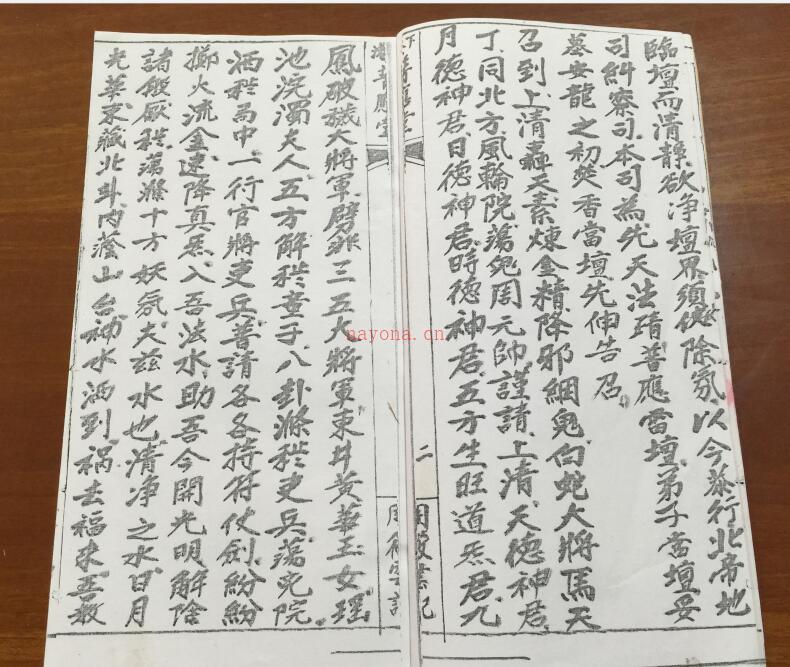 臨壇而清靜欲净壇界須憑除氛以今恭行北帝地
司糾察司本司為先天法蹟普應當壇弟子當壇妥
墓安龍之初爇香當壇先伸告召
召到上清轟天素煉金精降邪綑鬼白蛇大將馬天
丁同北方風輪院蕩鬼周元帥謹請上清天德神君
月德神君日德神君時德神君五方生旺道炁君九
二
鳳破穢大將軍劈非三五大將軍東井黃華玉女瑶
池浣濁夫人五方解穢童子八卦滌穢吏兵蕩穢院
洒穢局中一行官將吏兵普請各各持符仗劍紛紛
擲火流金速降真炁入吾法水助吾今開光明解除
諸般厭穢蕩滌十方妖氛夫茲水也清净之水日月
光華末藏北斗內瀅山台神水洒到禍去福來五數
nayona.cn